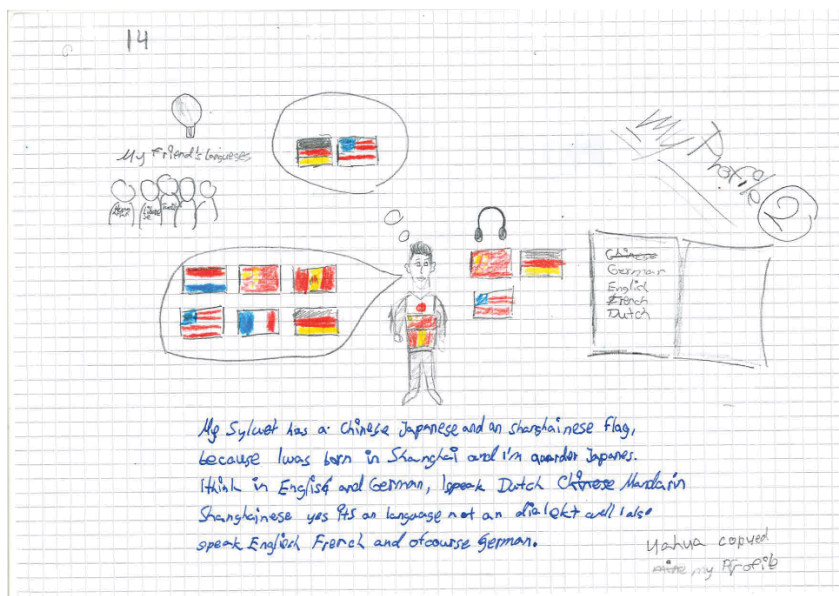 14
My Friend's langueses
My Profile 2
Chinese
German
Englich
French
Dutch
My Sylwet has a Chinese Japanese and an shanghainese flag,
because I was born in Shanghai and i'm quarder Japanes.
I think in English and German, I speak Dutch Chinese Mandarin
Shanghainese yes its an language not an dialekt and I also
speak Englich French and ofcourse German.
Yahya copyed
my Profile